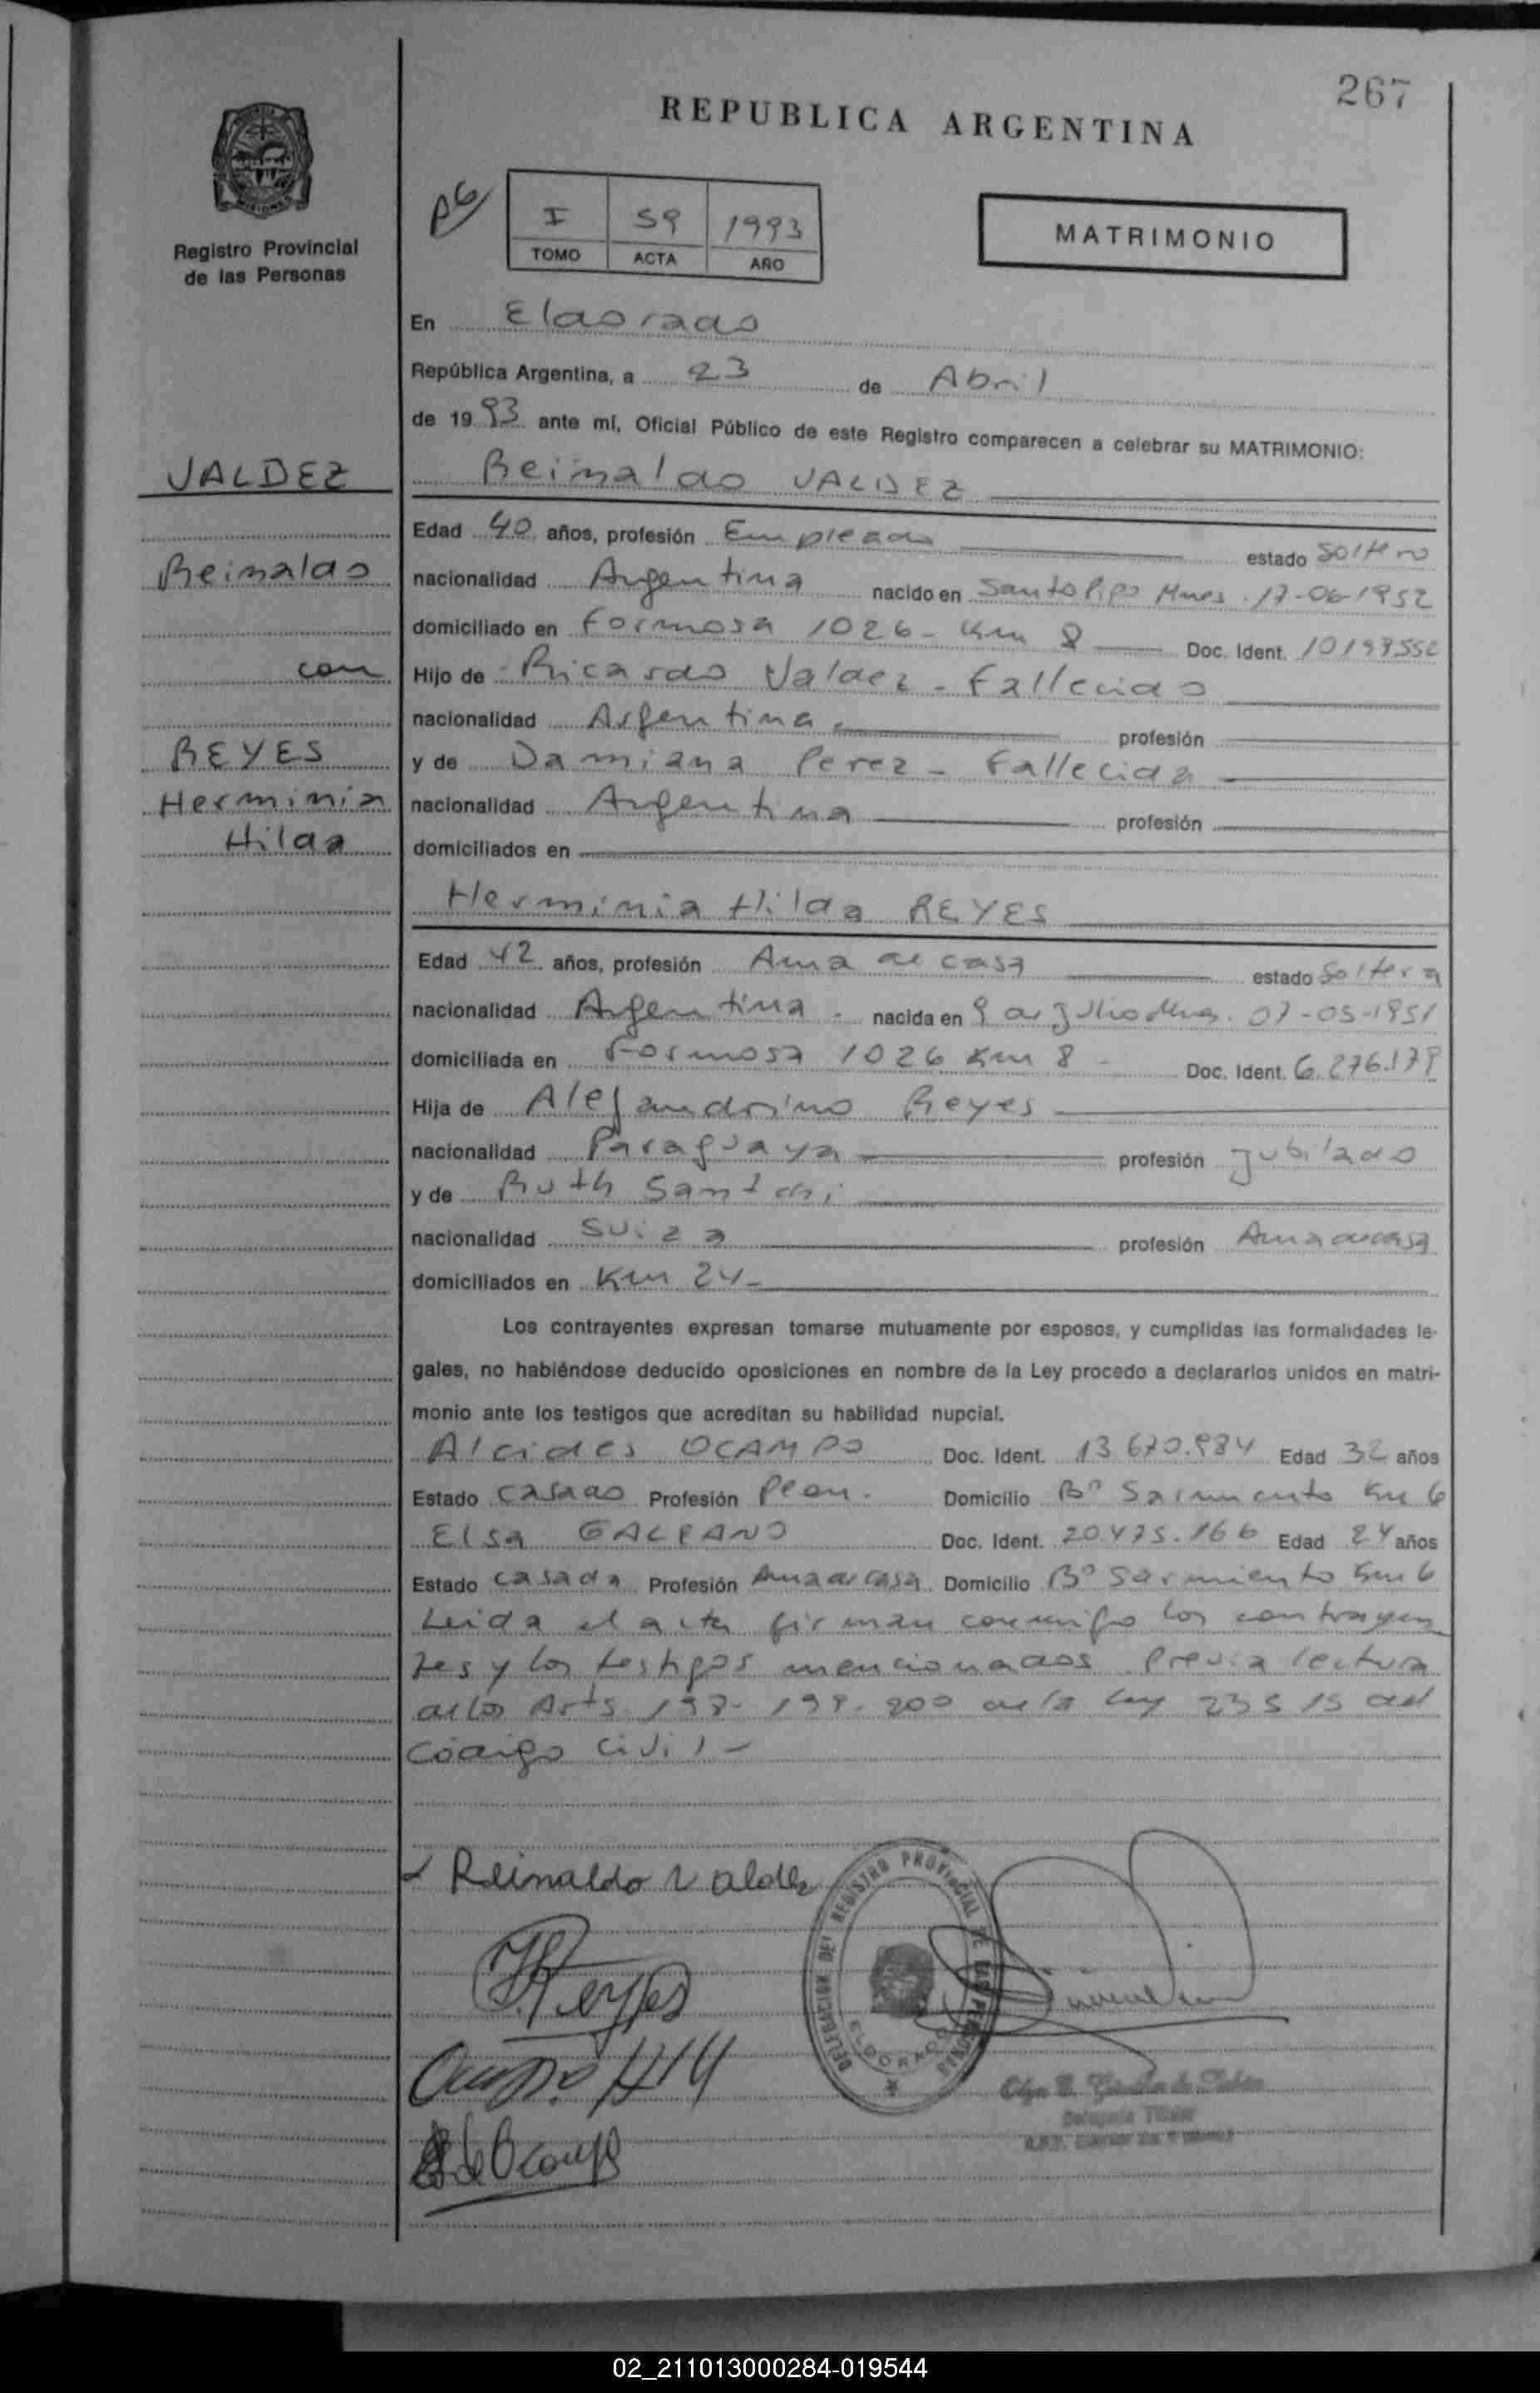 267
REPUBLICA ARGENTINA
Registro Provincial
de las Personas
I 59 1993
TOMO ACTA AÑO
MATRIMONIO
En Eldorado
República Argentina, a 23 de Abril
de 1993 ante mí, Oficial Público de este Registro comparecen a celebrar su MATRIMONIO:
VALDEZ
Reinaldo
con
REYES
Herminia
Hilda
Reinaldo VALDEZ
Edad 40 años, profesión Empleado estado Soltero
nacionalidad Argentina nacido en Santo Pipo Mnes. 17-06-1952
domiciliado en Formosa 1026 - Km 8 Doc. Ident.
Hijo de Ricardo Valdez - Fallecido
nacionalidad Argentina profesión
y de Damiana Perez - Fallecida
nacionalidad Argentina profesión
domiciliados en
Herminia Hilda REYES
Edad 42 años, profesión Ama de casa estado Soltera
nacionalidad Argentina nacida en 9 de Julio Mnes. 07-03-1951
domiciliada en Formosa 1026 Km 8 - Doc. Ident. 6.276.179
Hija de Alejandrino Reyes
nacionalidad Paraguaya profesión Jubilado
y de Ruth
nacionalidad Suiza profesión Ama de casa
domiciliados en Km 24-
Los contrayentes expresan tomarse mutuamente por esposos, y cumplidas las formalidades le-
gales, no habiéndose deducido oposiciones en nombre de la Ley procedo a declararlos unidos en matri-
monio ante los testigos que acreditan su habilidad nupcial.
Alcides OCAMPO Doc. Ident. 13.670.984 Edad 32 años
Estado Casado Profesión Peon. Domicilio Bº Sarmiento Km 6
Elsa GALEANO Doc. Ident. 20.475.166 Edad 24 años
Estado Casada Profesión Ama de casa Domicilio Bº Sarmiento Km 6
Leida el acta firman conmigo los contrayen
tes y los testigos mencionados. Previa lectura
de los Arts. 198- 199- 200 de la Ley 23515 del
Código Civil -
Reinaldo Valdez
HReyes
DELEGACION DEL REGISTRO PROVINCIAL DE LAS PERSONAS
ELDORADO
Delegada Titular
02_211013000284-019544